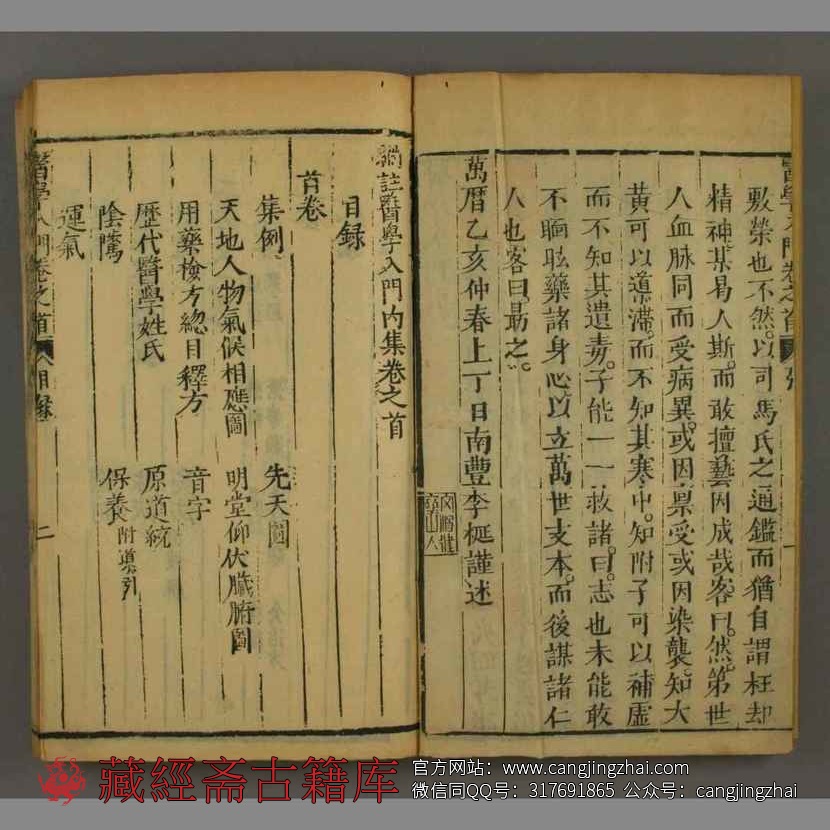 醫學入門卷之首
敷榮也不然以司馬氏之通鑑而猶自謂枉却
精神某昜人斯而敢擅藝因成哉客曰然第世
人血脉同而受病異或因禀受或因染襲知大
黃可以導滯而不知其寒中知附子可以補虛
而不知其遺毒子能一一救諸曰志也未能敢
不瞑眩藥諸身心以立萬世支本而後謀諸仁
人也客曰勗之
萬曆乙亥仲春上丁日南豐李梴謹述
編註醫學入門內集卷之首
目録
首卷
集例 先天圖
天地人物氣候相應圖 明堂仰伏臟腑圖
用藥檢方總目釋方 音字
歷代醫學姓氏 原道統
陰隲 保養附導引
運氣
醫學入門卷之首 目録 二
藏經斋古籍库
官方网站：www.cangjingzhai.com
微信同QQ号：317691865 公众号：cangjingzhai